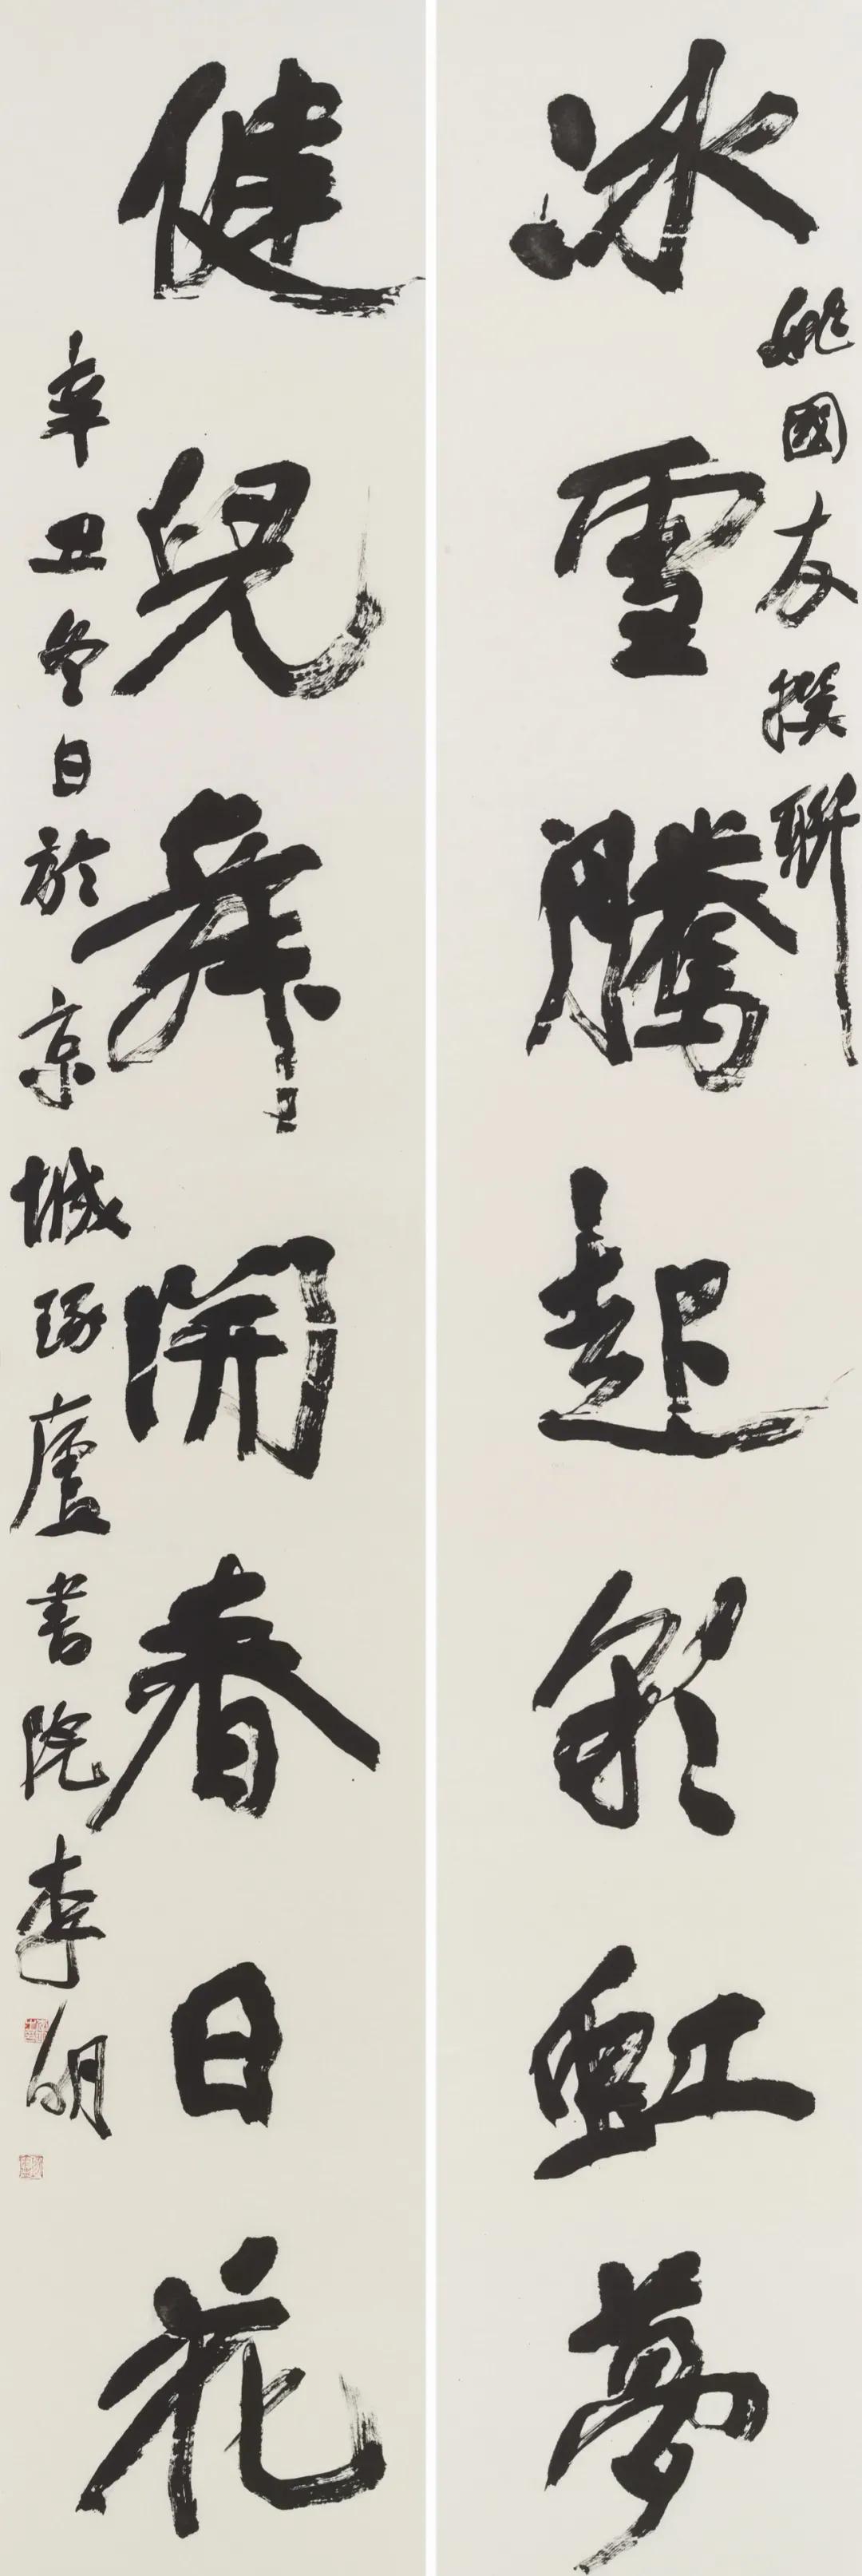 冰雪騰起彩虹夢
姚國友撰聯
健兒舞開春日花
辛丑冬日於京城琢廬書院李明